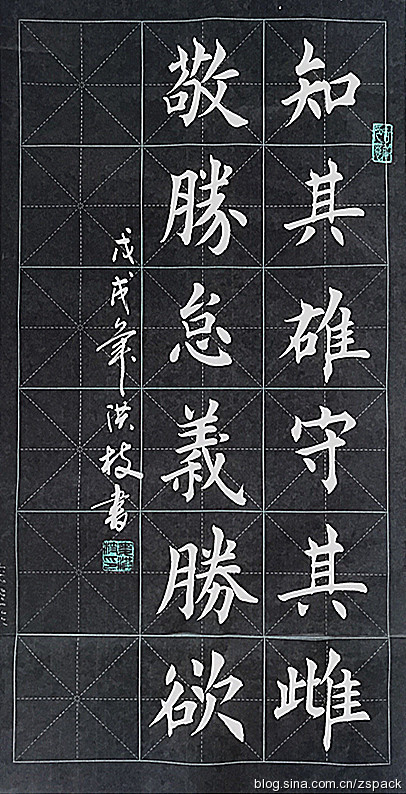 知其雄守其雌
敬勝怠義勝欲
戊戌年洪枝書
blog.sina.com.cn/zspack